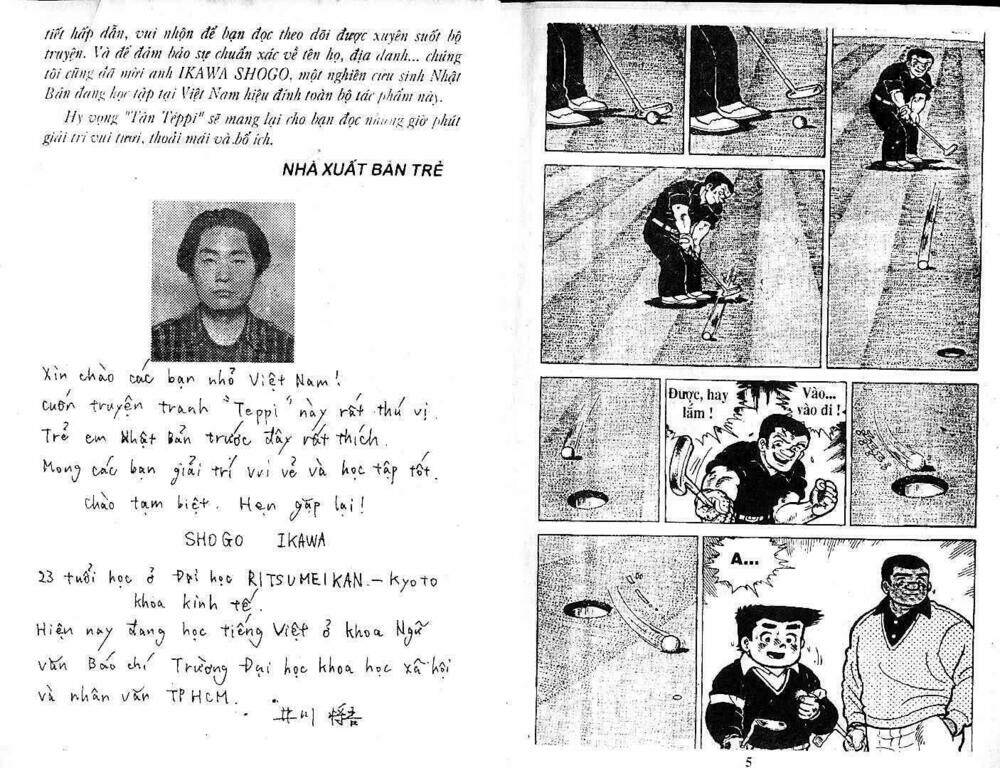 tiết hấp dẫn, vui nhộn để bạn đọc theo dõi được xuyên suốt bộ
truyện. Và để đảm bảo sự chuẩn xác về tên họ, địa danh... chúng
tôi cũng đã mời anh IKAWA SHOGO, một nghiên cứu sinh Nhật
Bản đang học tập tại Việt Nam hiệu đính toàn bộ tác phẩm này.
Hy vọng "Tân Téppi" sẽ mang lại cho bạn đọc những giờ phút
giải trí vui tươi, thoải mái và bổ ích.
NHÀ XUẤT BẢN TRẺ
Xin chào các bạn nhỏ Việt Nam!
Cuốn truyện tranh "Teppi" này rất thú vị.
Trẻ em Nhật Bản trước đây rất thích.
Mong các bạn giải trí vui vẻ và học tập tốt.
Chào tạm biệt. Hẹn gặp lại!
SHOGO IKAWA
23 tuổi học ở Đại học RITSUMEIKAN - Kyoto
khoa kinh tế.
Hiện nay đang học tiếng Việt ở khoa Ngữ
văn Báo chí Trường Đại học khoa học xã hội
và nhân văn TPHCM.
井川 将吾
Được, hay
lắm !
Vào...
vào đi !
A...
5